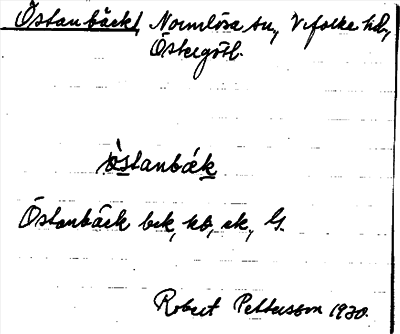 Östanbäck, Normlösa sn, Vifolka hd,
Östergötl.
òstanbæk
Östanbäck bek, kb, ek, G.
Robert Pettersson 1930.